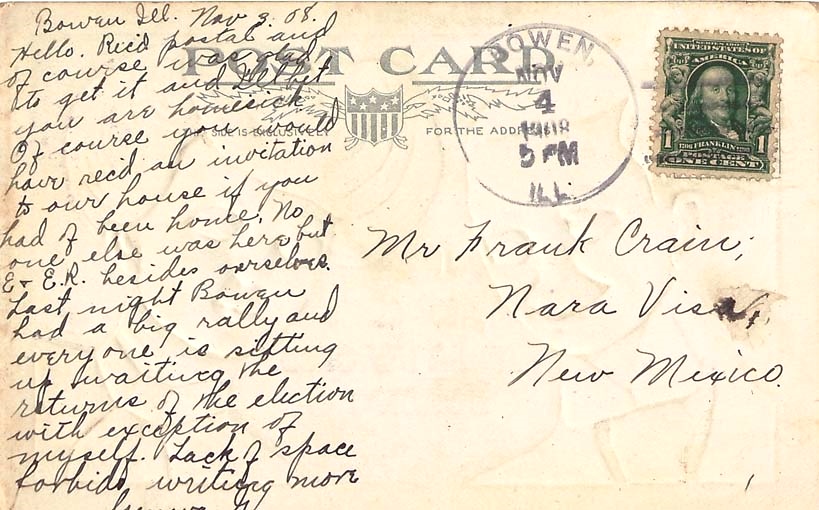 Bowen Ill. Nov 3. 08.
Hello. Rec'd postal and
of course was glad
to get it and I'll bet
you are homesick
Of course you would
have rec'd an invitation
to our house if you
had of been home. No
one else was here but
E + E.R. besides ourselves.
Last night Bowen
had a big rally and
everyone is sitting
up waiting the
returns of the election
with exception of
myself. Lack of space
forbids writing more
POST CARD
THIS SIDE IS EXCLUSIVELY FOR THE ADDRESS
BOWEN,
NOV
4
1908
5 PM
ILL.
UNITED STATES OF
AMERICA
1 1
FRANKLIN
POSTAGE
ONE CENT
Mr Frank Crain,
Nara Visa,
New Mexico.